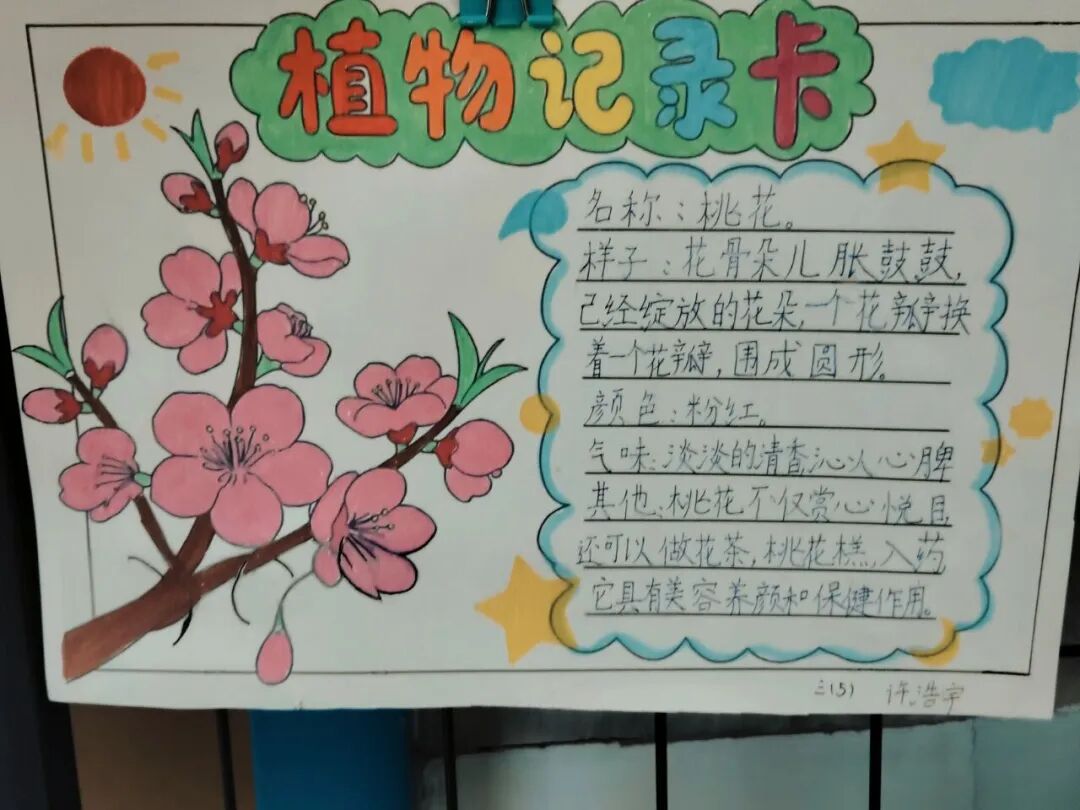 植物记录卡
名称：桃花。
样子：花骨朵儿胀鼓鼓，
已经绽放的花朵，一个花瓣换
着一个花瓣，围成圆形。
颜色：粉红。
气味：淡淡的清香，沁人心脾
其他：桃花不仅赏心悦目
还可以做花茶，桃花糕，入药，
它具有美容养颜和保健作用。
三(5) 许浩宇